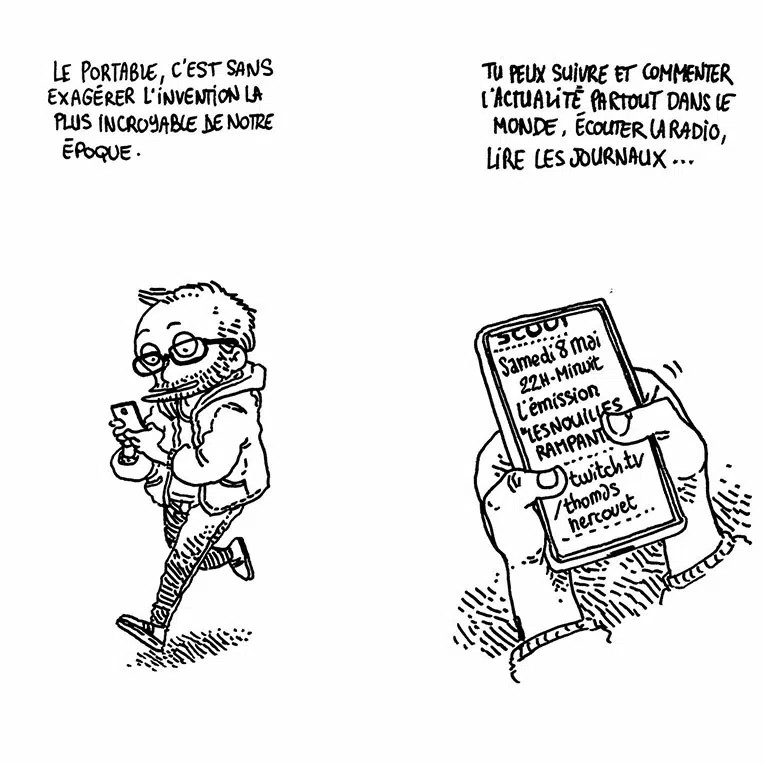 LE PORTABLE, C'EST SANS
EXAGÉRER L'INVENTION LA
PLUS INCROYABLE DE NOTRE
ÉPOQUE.
TU PEUX SUIVRE ET COMMENTER
L'ACTUALITÉ PARTOUT DANS LE
MONDE, ÉCOUTER LA RADIO,
LIRE LES JOURNAUX...
SCOOP
Samedi 8 Mai
22H-Minuit
L'émission
"LES NOUILLES
RAMPANT
twitch.tv
/thomas
hercouet